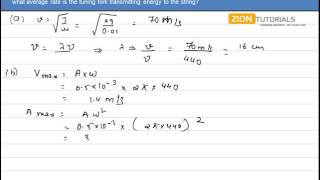 what average rate is the tuning fork transmitting energy to the string?
ZION
TUTORIALS
(a) v = √(T/μ) = √(49/0.01) = 70 m/s
v = λν ⇒ λ = v/ν = 70 m/s / 440 = 16 cm
(b) Vmax = Aω
= 0.5 × 10⁻³ × 2π × 440
= 1.4 m/s
Amax = Aω²
= 0.5 × 10⁻³ × (2π × 440)²
= 3